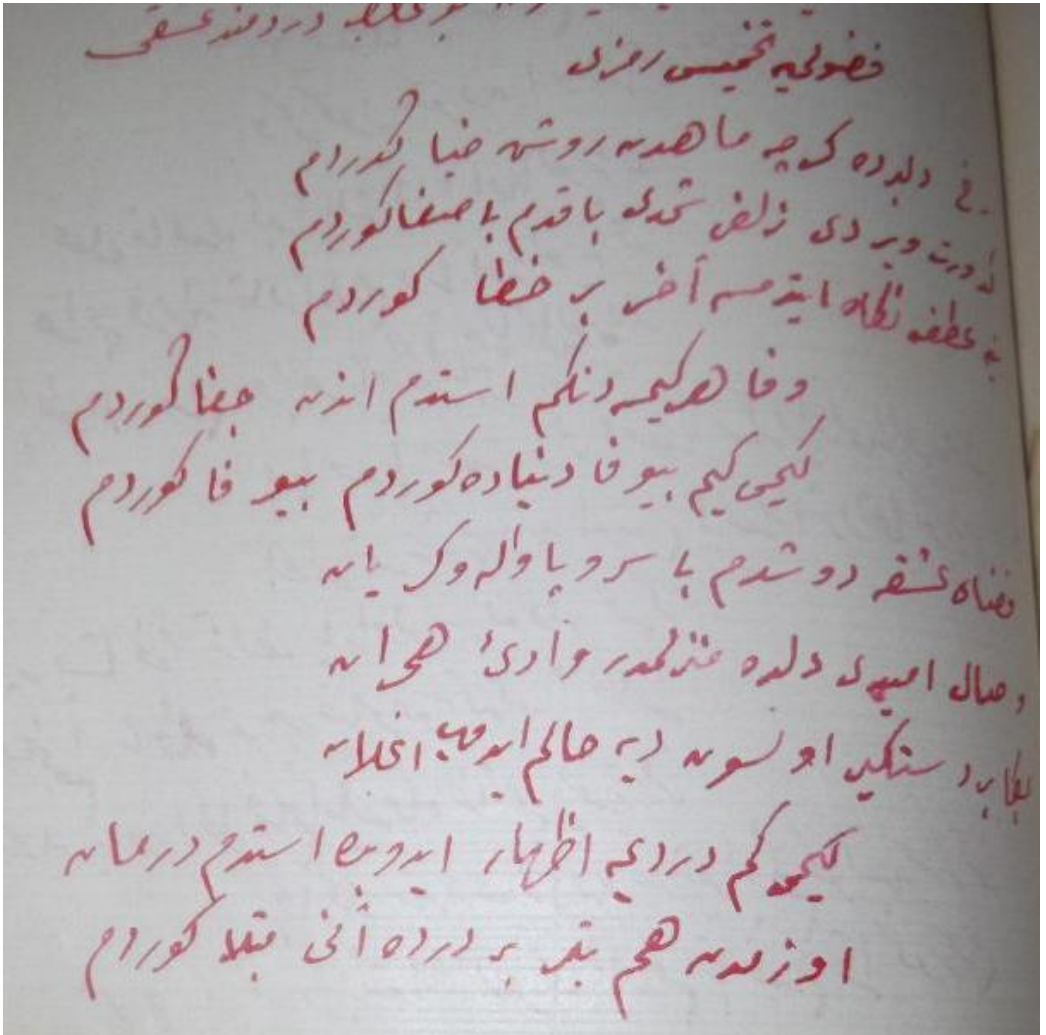 دردمند عشقی
فضولیه تخمیس رمزی
دلبرده کرچه ماهدن روشن ضیا کوردم
ویردی زلفی باقدم باصفا کوردم
نکاه ایتدمسه آخر بر خطا کوردم
وفا هر کیمسه دنکم استدم اندن جفا کوردم
کیمی کیم بیوفا دنیاده کوردم بیوفا کوردم
عشقه دوشدم بی سر و پا واله و کریان
وصال امیدی دلده منزلمدر وادئ هجران
بکا بر دستکیر اولسون دیه حالم ایدوب اعلان
کیمی کم دردیمی اظهار ایدوبن استدم درمان
اوزمدن هم بتر بر درده آنی مبتلا کوردم